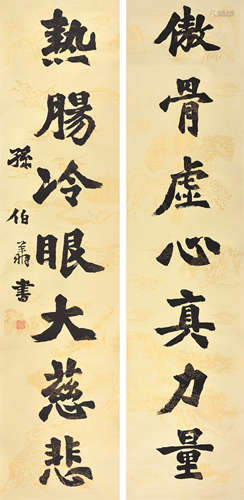 傲骨虛心真力量
熱腸冷眼大慈悲
孫伯翔書